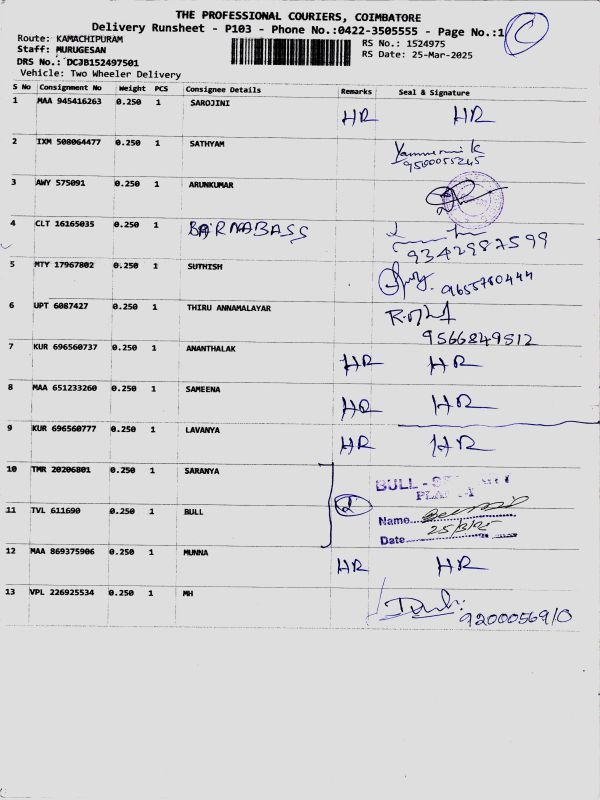 THE PROFESSIONAL COURIERS, COIMBATORE
Delivery Runsheet - P103 - Phone No.:0422-3505555 - Page No.:1
C
Route: KAMACHIPURAM
RS No.: 1524975
Staff: MURUGESAN
RS Date: 25-Mar-2025
DRS No.: DCJB152497501
Vehicle: Two Wheeler Delivery
S No Consignment No Weight PCS Consignee Details Remarks Seal & Signature
1 MAA 945416263 0.250 1 SAROJINI HR HR
2 IXM 508064477 0.250 1 SATHYAM
9500055245
3 AWY 575091 0.250 1 ARUNKUMAR
4 CLT 16165035 0.250 1 BARNABASS
9342987599
5 MTY 17967802 0.250 1 SUTHISH 9655780444
6 UPT 6087427 0.250 1 THIRU ANNAMALAYAR
9566849512
7 KUR 696560737 0.250 1 ANANTHALAK HR HR
8 MAA 651233260 0.250 1 SAMEENA HR HR
9 KUR 696560777 0.250 1 LAVANYA HR HR
10 TMR 20206801 0.250 1 SARANYA
BULL -
11 TVL 611690 0.250 1 BULL 2
Name
Date 25/3/25
12 MAA 869375906 0.250 1 MUNNA HR HR
13 VPL 226925534 0.250 1 MH
9200056910